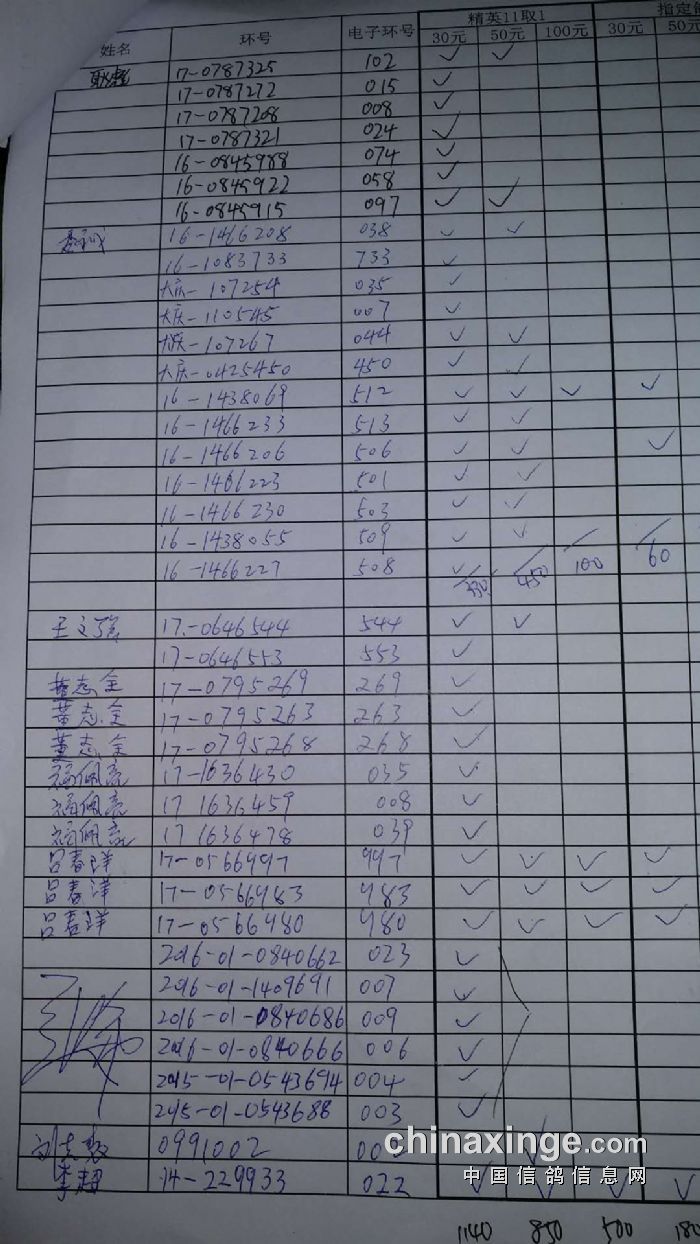 精英11取1 指定
姓名 环号 电子环号 30元 50元 100元 30元 50元
17-0787325 102 ✓ ✓
17-0787272 015 ✓
17-0787208 008 ✓
17-0787321 024 ✓
16-0845988 074 ✓
16-0845922 058 ✓
16-0845915 097 ✓ ✓
16-1466208 038 ✓ ✓
16-1083733 733 ✓
大庆-107254 035 ✓
大庆-110545 007 ✓
大庆-107267 044 ✓ ✓
大庆-0425450 450 ✓ ✓
16-1438069 512 ✓ ✓ ✓ ✓
16-1466233 513 ✓ ✓
16-1466206 506 ✓ ✓ ✓
16-1466223 501 ✓ ✓
16-1466230 503 ✓ ✓
16-1438055 509 ✓ ✓
16-1466227 508 ✓
330 450 100 60
王文强 17-0646544 544 ✓ ✓
17-0646553 553 ✓
董志全 17-0795269 269 ✓
董志全 17-0795263 263 ✓
董志全 17-0795268 268 ✓
17-1636430 035 ✓
17 1636459 008 ✓
17 1636478 039 ✓
吕春洋 17-0566997 997 ✓ ✓ ✓ ✓
吕春洋 17-0566983 983 ✓ ✓ ✓ ✓
吕春洋 17-0566980 980 ✓ ✓ ✓ ✓
2016-01-0840662 023 ✓
2016-01-1409691 007 ✓
2016-01-0840686 009 ✓
2016-01-0840666 006 ✓
2015-01-0543694 004 ✓
2015-01-0543688 003 ✓
0991002
李超 14-229933 022 ✓ ✓ ✓ ✓
1140 850 500 180
chinaxinge.com
中国信鸽信息网